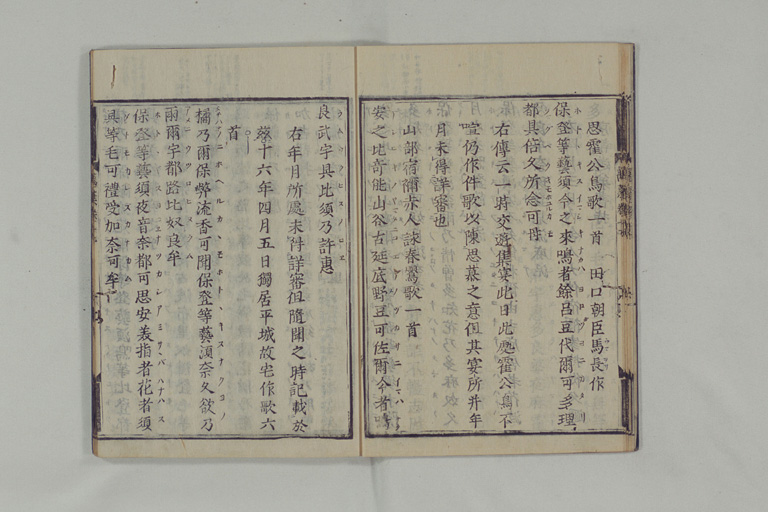 思霍公鳥歌一首　田口朝臣馬長作
保登等藝須今之来鳴者餘呂豆代爾可多理
都具倍久所念可母
右傳云一時交遊集宴此日此處霍公鳥不
喧仍作件歌以陳思慕之意但其宴所并年
月未得詳審也
山部宿祢赤人詠春鸎歌一首
安之比奇能山谷古延弖野豆可佐爾今者鳴
良武宇具比須乃許惠
右年月所處未得詳審但隨聞之時記載於
茲十六年四月五日獨居平城故宅作歌六
首
橘乃爾保敝流香可聞保登等藝須奈久欲乃
雨爾宇都路比奴良牟
保登等藝須夜音奈都可思安美指者花者須
具等毛可禮受加奈可牟